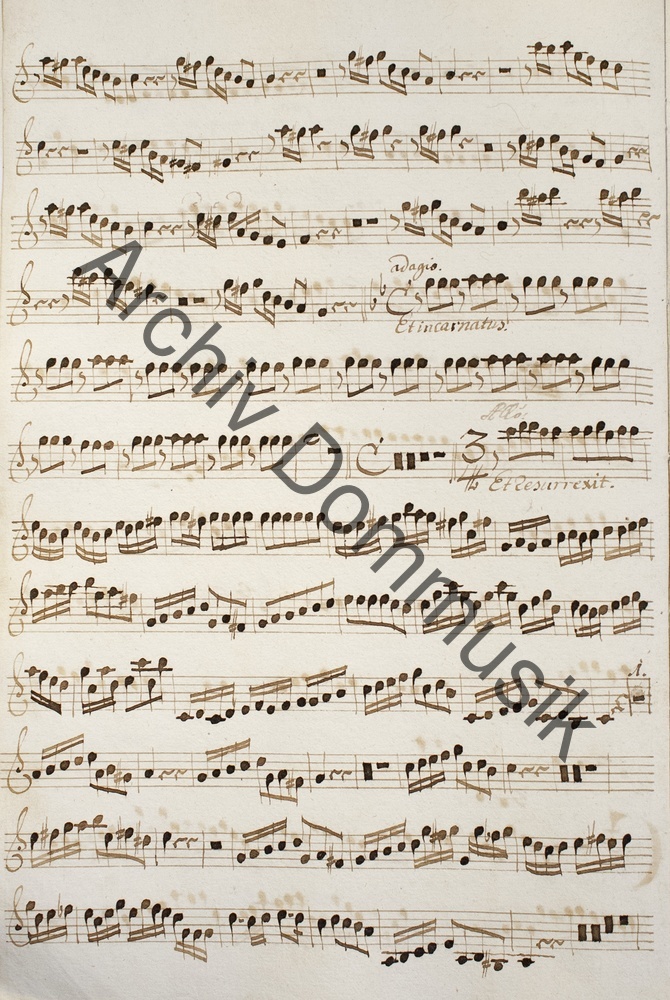 adagio.
Et incarnatus.
All̊o.
3
Et Resurrexit.
1.
Archiv Dommusik